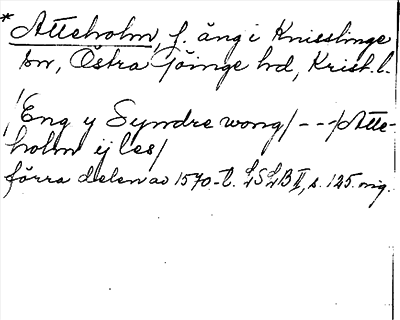 * Atteholm, f. äng i Knisslinge
sn, Östra Göinge hd, Krist. l.
/Eng y Syndre wong/ - - -/Atte-
holm ij les/
förra delen av 1570-t. LSLB II, s. 125. mg.